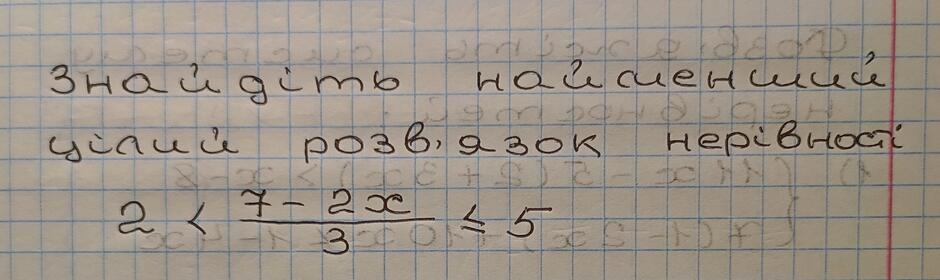 Знайдіть найменший
цілий розв'язок нерівності
2 < (7 - 2x)/3 ≤ 5